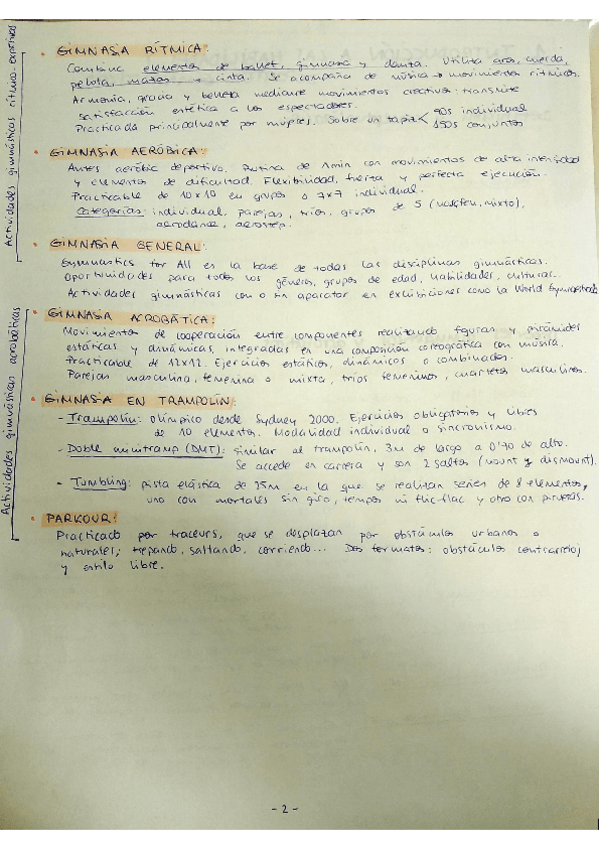 Actividades gimnásticas ritmo-expresivas
• GIMNASIA RÍTMICA:
Combina elementos de ballet, gimnasia y danza. Utiliza aros, cuerda,
pelota, mazas y cinta. Se acompaña de música → movimientos rítmicos.
Armonía, gracia y belleza mediante movimientos creativos: transmite
satisfacción estética a los espectadores.
Practicada principalmente por mujeres. Sobre un tapiz < 90s individual
150s conjuntos
• GIMNASIA AERÓBICA:
Antes aeróbic deportivo. Rutina de 1min con movimientos de alta intensidad
y elementos de dificultad. Flexibilidad, fuerza y perfecta ejecución.
Practicable de 10x10 en grupos o 7x7 individual.
Categorías: individual, parejas, tríos, grupos de 5 (masc, fem, mixto),
aerodance, aerostep.
• GIMNASIA GENERAL:
Gymnastics for All es la base de todas las disciplinas gimnásticas.
Oportunidades para todos los géneros, grupos de edad, habilidades, culturas.
Actividades gimnásticas con o sin aparatos en exhibiciones como la World Gymnaestrada
Actividades gimnásticas acrobáticas
• GIMNASIA ACROBÁTICA:
Movimientos de cooperación entre componentes realizando figuras y pirámides
estáticas y dinámicas, integradas en una composición coreográfica con música.
Practicable de 12x12. Ejercicios estáticos, dinámicos o combinados.
Parejas masculina, femenina o mixta, tríos femeninos, cuartetos masculinos.
• GIMNASIA EN TRAMPOLÍN:
- Trampolín: olímpico desde Sydney 2000. Ejercicios obligatorios y libres
de 10 elementos. Modalidad individual o sincronismo.
- Doble minitramp (DMT): similar al trampolín, 3m de largo a 0'70 de alto.
Se accede en carrera y son 2 saltos (mount y dismount).
- Tumbling: pista elástica de 25m en la que se realizan series de 8 elementos,
uno con mortales sin giro, tempos ni flic-flac y otro con piruetas.
• PARKOUR:
Practicado por traceurs, que se desplazan por obstáculos urbanos o
naturales; trepando, saltando, corriendo... Dos formatos: obstáculos contrarreloj
y estilo libre.
- 2 -